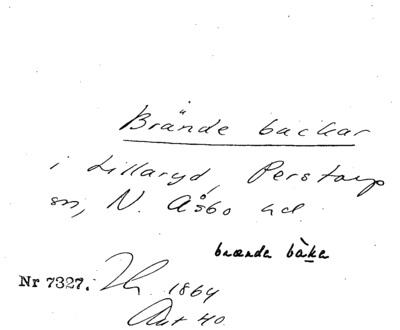 Brände backar
i Lillaryd, Perstorp
sn, N. Åsbo hd.
brænda bàka
Nr 7327. Lh. 1864
Akt 40.